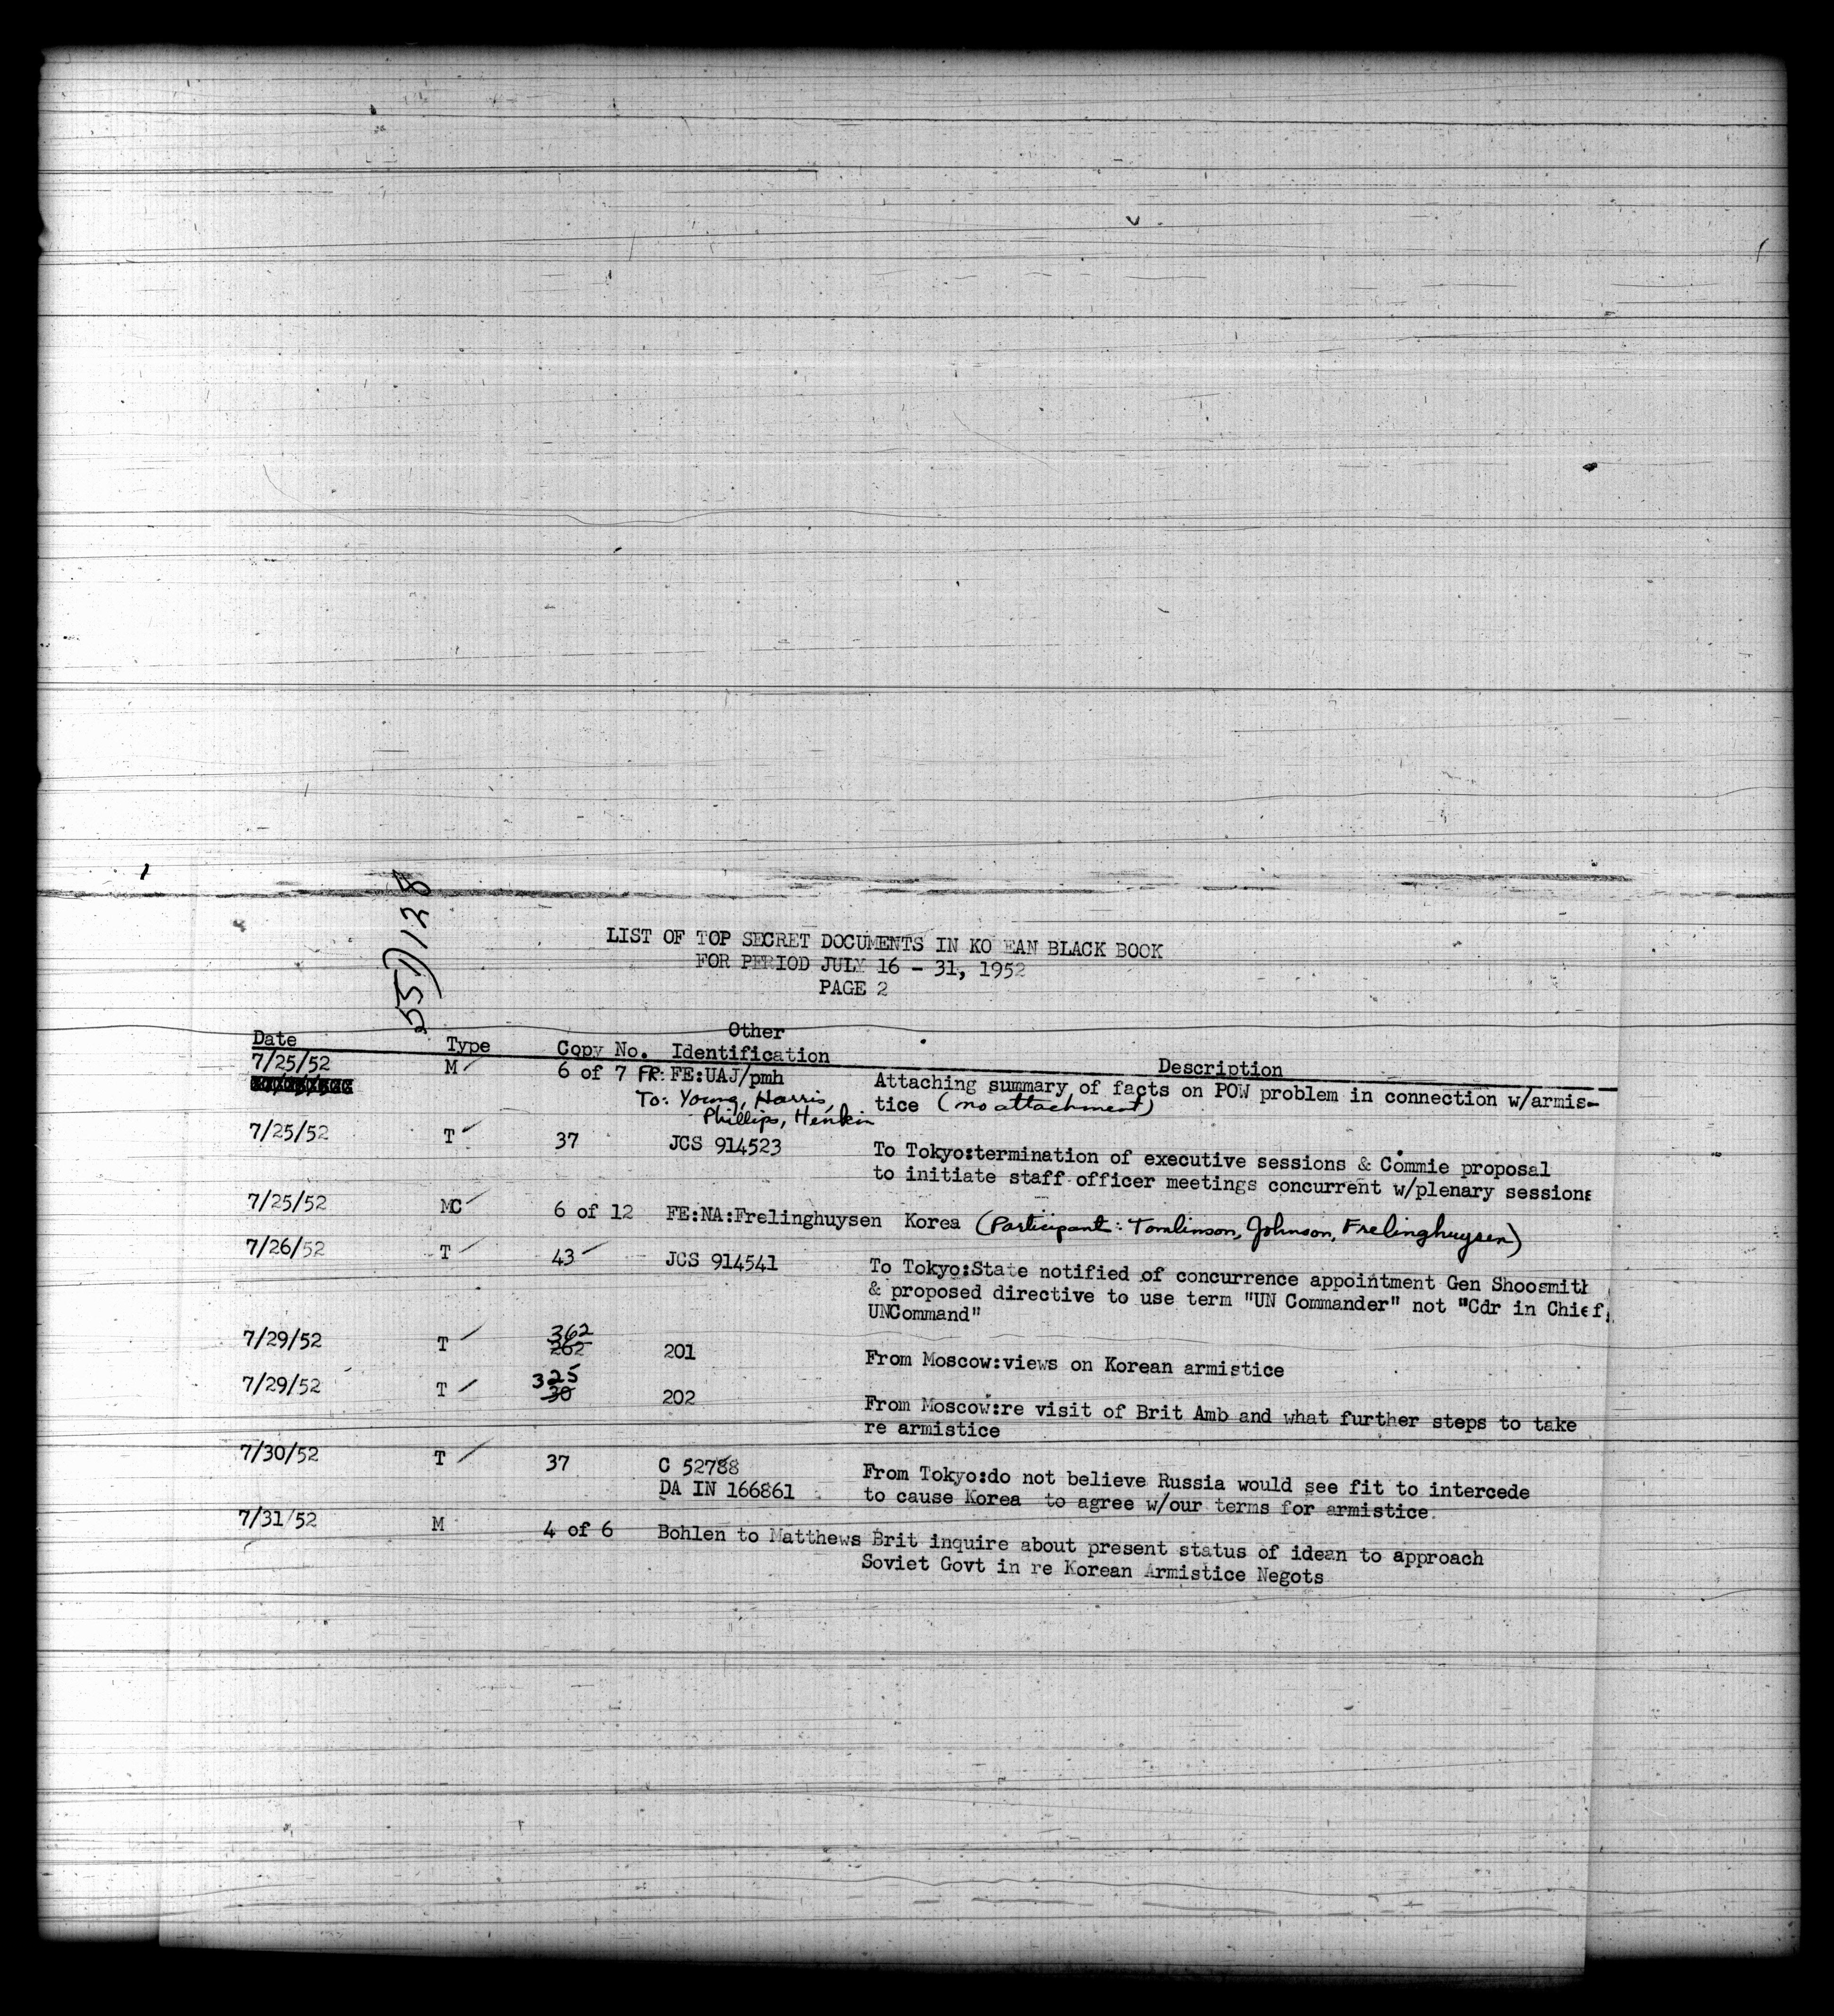 55D128
LIST OF TOP SECRET DOCUMENTS IN KO EAN BLACK BOOK
FOR PERIOD JULY 16 - 31, 1952
PAGE 2
Date Type Copy No. Other Identification Description
7/25/52 M 6 of 7 FR: FE:UAJ/pmh Attaching summary of facts on POW problem in connection w/armis-
To: Young, Harris, tice (no attachment)
Phillips, Henkin
7/25/52 T 37 JCS 914523 To Tokyo:termination of executive sessions & Commie proposal
to initiate staff officer meetings concurrent w/plenary sessions
7/25/52 MC 6 of 12 FE:NA:Frelinghuysen Korea (Participant: Tomlinson, Johnson, Frelinghuysen)
7/26/52 T 43 JCS 914541 To Tokyo:State notified of concurrence appointment Gen Shoosmith
& proposed directive to use term "UN Commander" not "Cdr in Chief,
UNCommand"
362
7/29/52 T 262 201 From Moscow:views on Korean armistice
325
7/29/52 T 30 202 From Moscow:re visit of Brit Amb and what further steps to take
re armistice
7/30/52 T 37 C 52788 From Tokyo:do not believe Russia would see fit to intercede
DA IN 166861 to cause Korea to agree w/our terms for armistice.
7/31/52 M 4 of 6 Bohlen to Matthews Brit inquire about present status of idean to approach
Soviet Govt in re Korean Armistice Negots